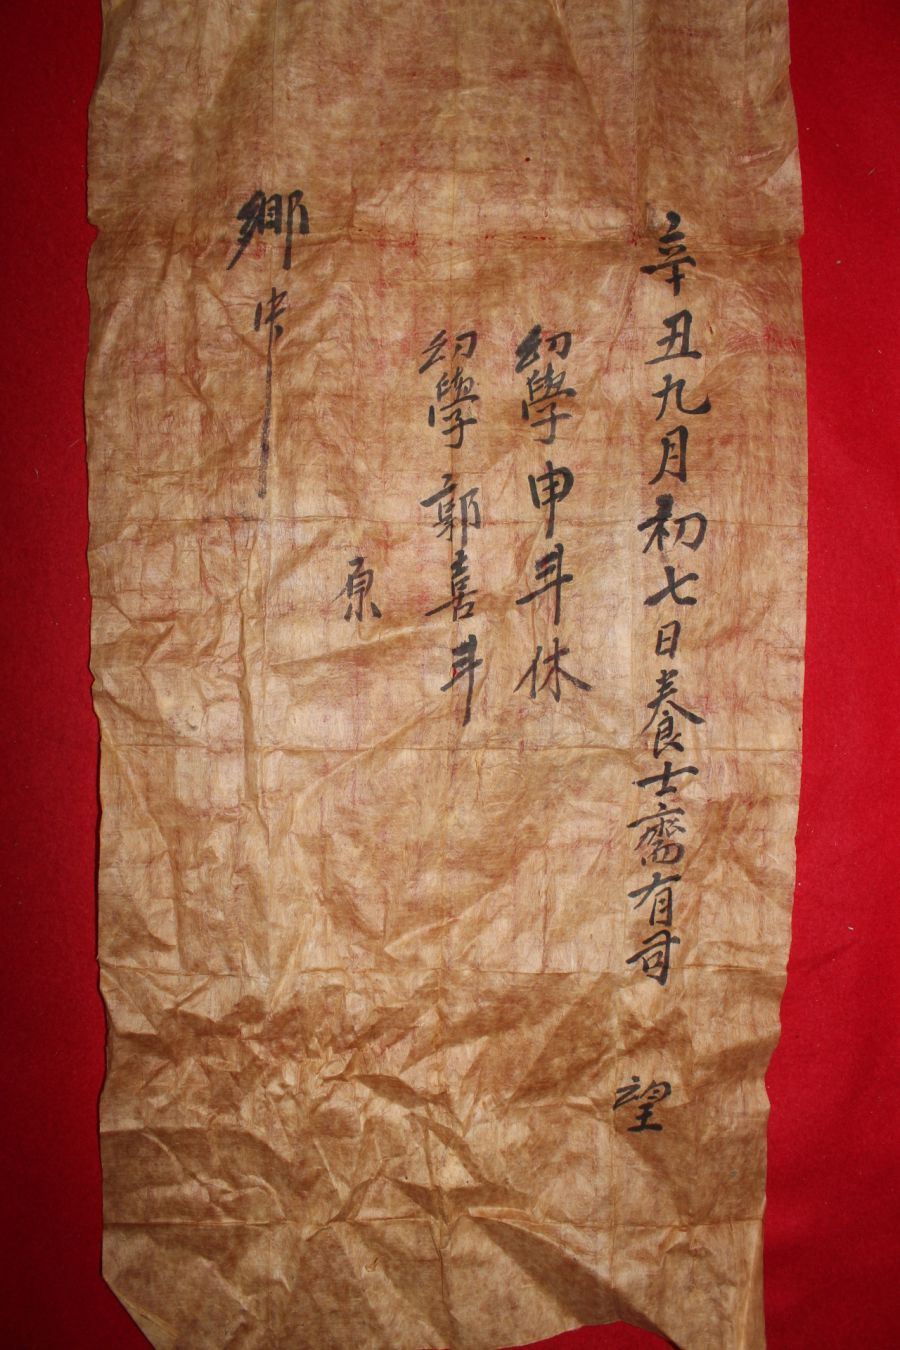 辛丑九月初七日養士齋有司 望
幼學申斗休
幼學郭喜斗
原
鄉中